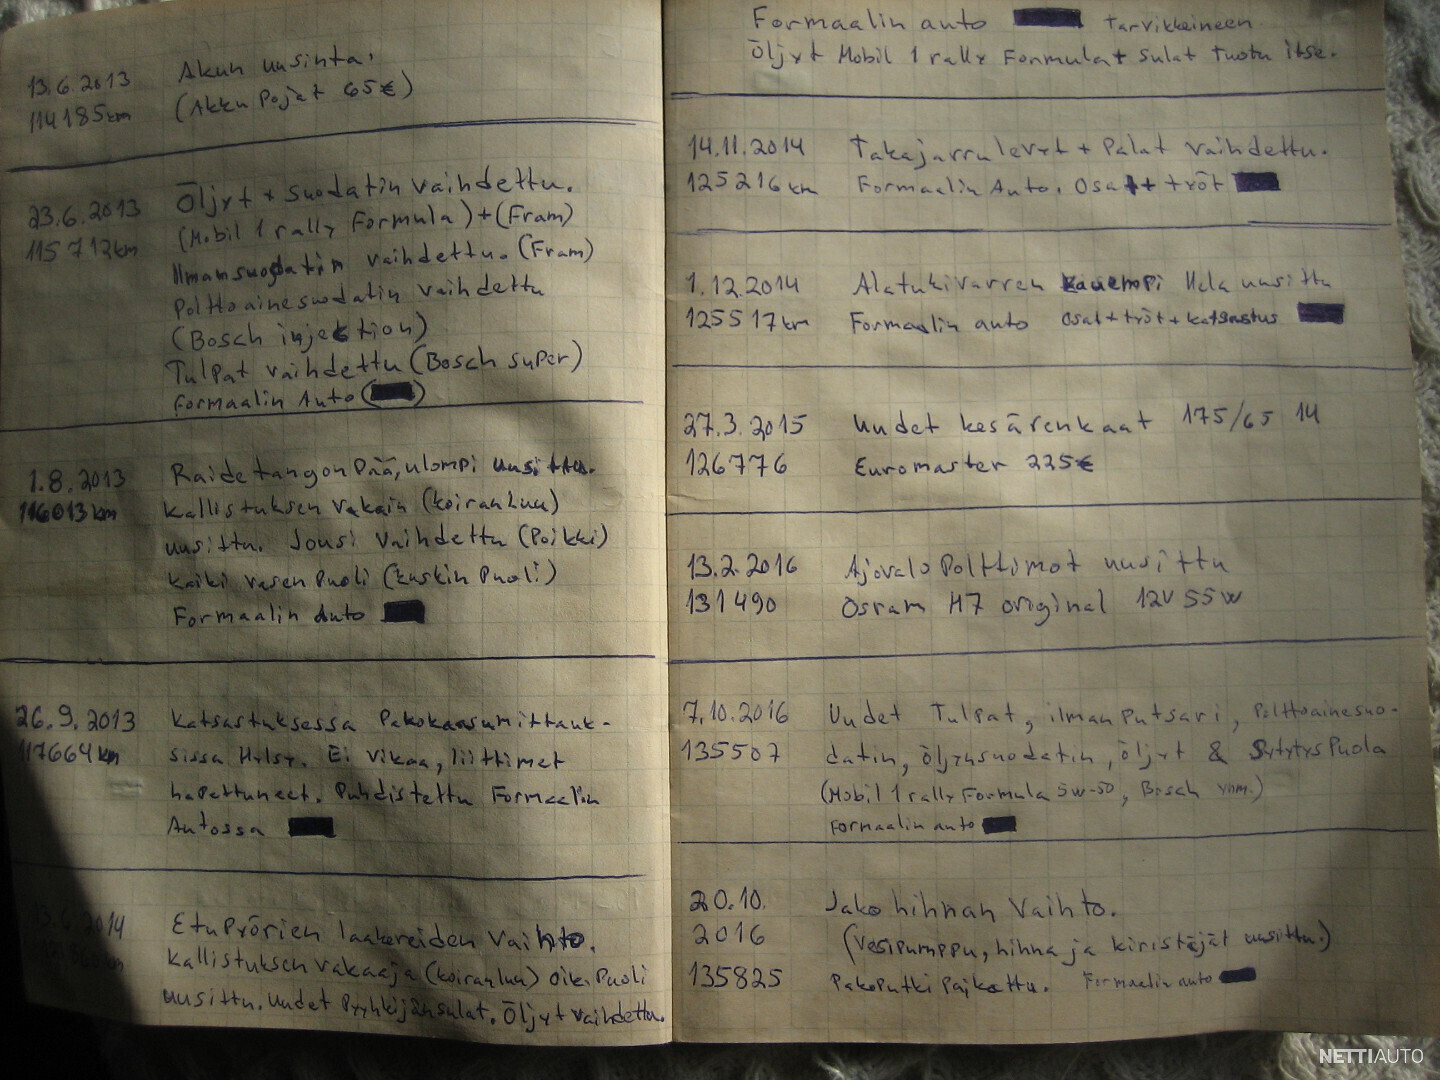 13.6.2013 Akun uusinta.
114185km (Akku Pojat 65€)
23.6.2013 Öljyt + suodatin vaihdettu.
115712km (Mobil 1 rally Formula) + (Fram)
Ilmansuodatin vaihdettu. (Fram)
Polttoainesuodatin vaihdettu
(Bosch injektion)
Tulpat vaihdettu (Bosch super)
Formaalin Auto ( )
1.8.2013 Raidetangon Pää, ulompi uusittu.
116013km Kallistuksen vakain (koiranluu)
uusittu. Jousi vaihdettu (Poikki)
Kaiki vasen Puoli (kuskin Puoli)
Formaalin Auto
26.9.2013 Katsastuksessa Pakokaasumittauk-
117664km sissa Hylsy. Ei vikaa, liittimet
hapettuneet. Puhdistettu Formaalin
Autossa
2014 EtuPyörien laakereiden vaihto.
km Kallistuksen vakaaja (koiranluu) oik. Puoli
uusittu. Uudet Pyyhkijänsulat. Öljyt vaihdettu.
Formaalin auto Tarvikkeineen
Öljyt Mobil 1 rally Formula + Sulat Tuotu itse.
14.11.2014 Takajarrulevyt + Palat vaihdettu.
125216km Formaalin Auto. Osat + työt
1.12.2014 Alatukivarren Kauempi Hela uusittu
125517km Formaalin auto osat + työt + katsastus
27.3.2015 Uudet kesärenkaat 175/65 14
126776 Euromaster 225€
13.2.2016 Ajovalo Polttimot uusittu
131490 Osram H7 original 12V 55W
7.10.2016 Uudet Tulpat, ilman Putsari, Polttoainesuo-
135507 datin, öljynsuodatin, öljyt & SytytysPuola
(Mobil 1 rally Formula 5w-50, Bosch ynm.)
Formaalin auto
20.10. Jakohihnan Vaihto.
2016 (Vesipumppu, hihna ja kiristäjät uusittu.)
135825 PakoPutki Paikattu. Formaalin auto
NETTIAUTO